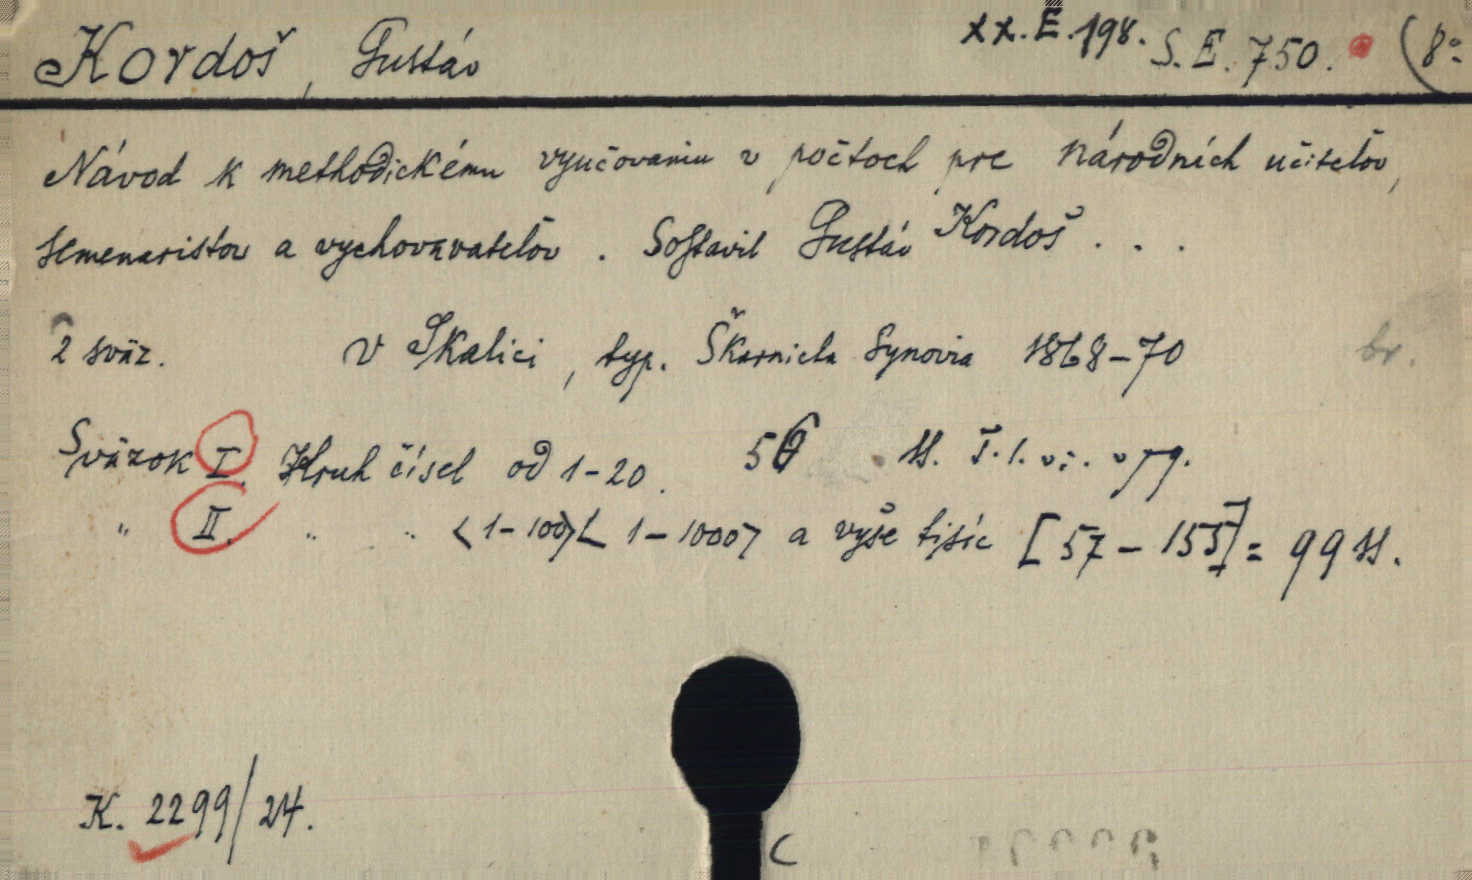 Kordoš, Gustáv XX.E.198. S.E.750. (8°
Návod k methodickému vyučovaniu v počtoch pre národních učitelov,
semenaristov a vychovavatelov. Sostavil Gustáv Kordoš . . .
2 sväz. V Skalici, typ. Škarnicla Synovia 1868-70 br.
Sväzok I. Kruh čísel od 1-20. 56 ll.
" II. " " <1-100> < 1-1000> a vyše tisíc [57-155] = 99 ll.
K. 2299/24.
C